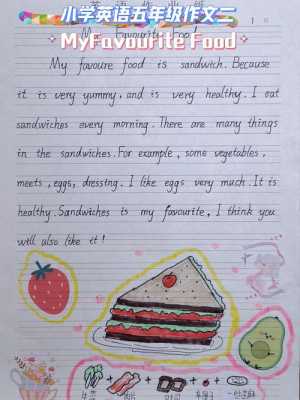 小学英语五年级作文二
MyFavourite Food
My Favourite Foo
My favoure food is sandwich. Because
it is very yummy, and is very healthy. I eat
sandwiches every morning. There are many things
in the sandwiches. For example, some vegetables,
meets, eggs, dresstng. I like eggs very much. It is
healthy. Sandwiches is my favourite, I think you
will also like it!
+ + + +